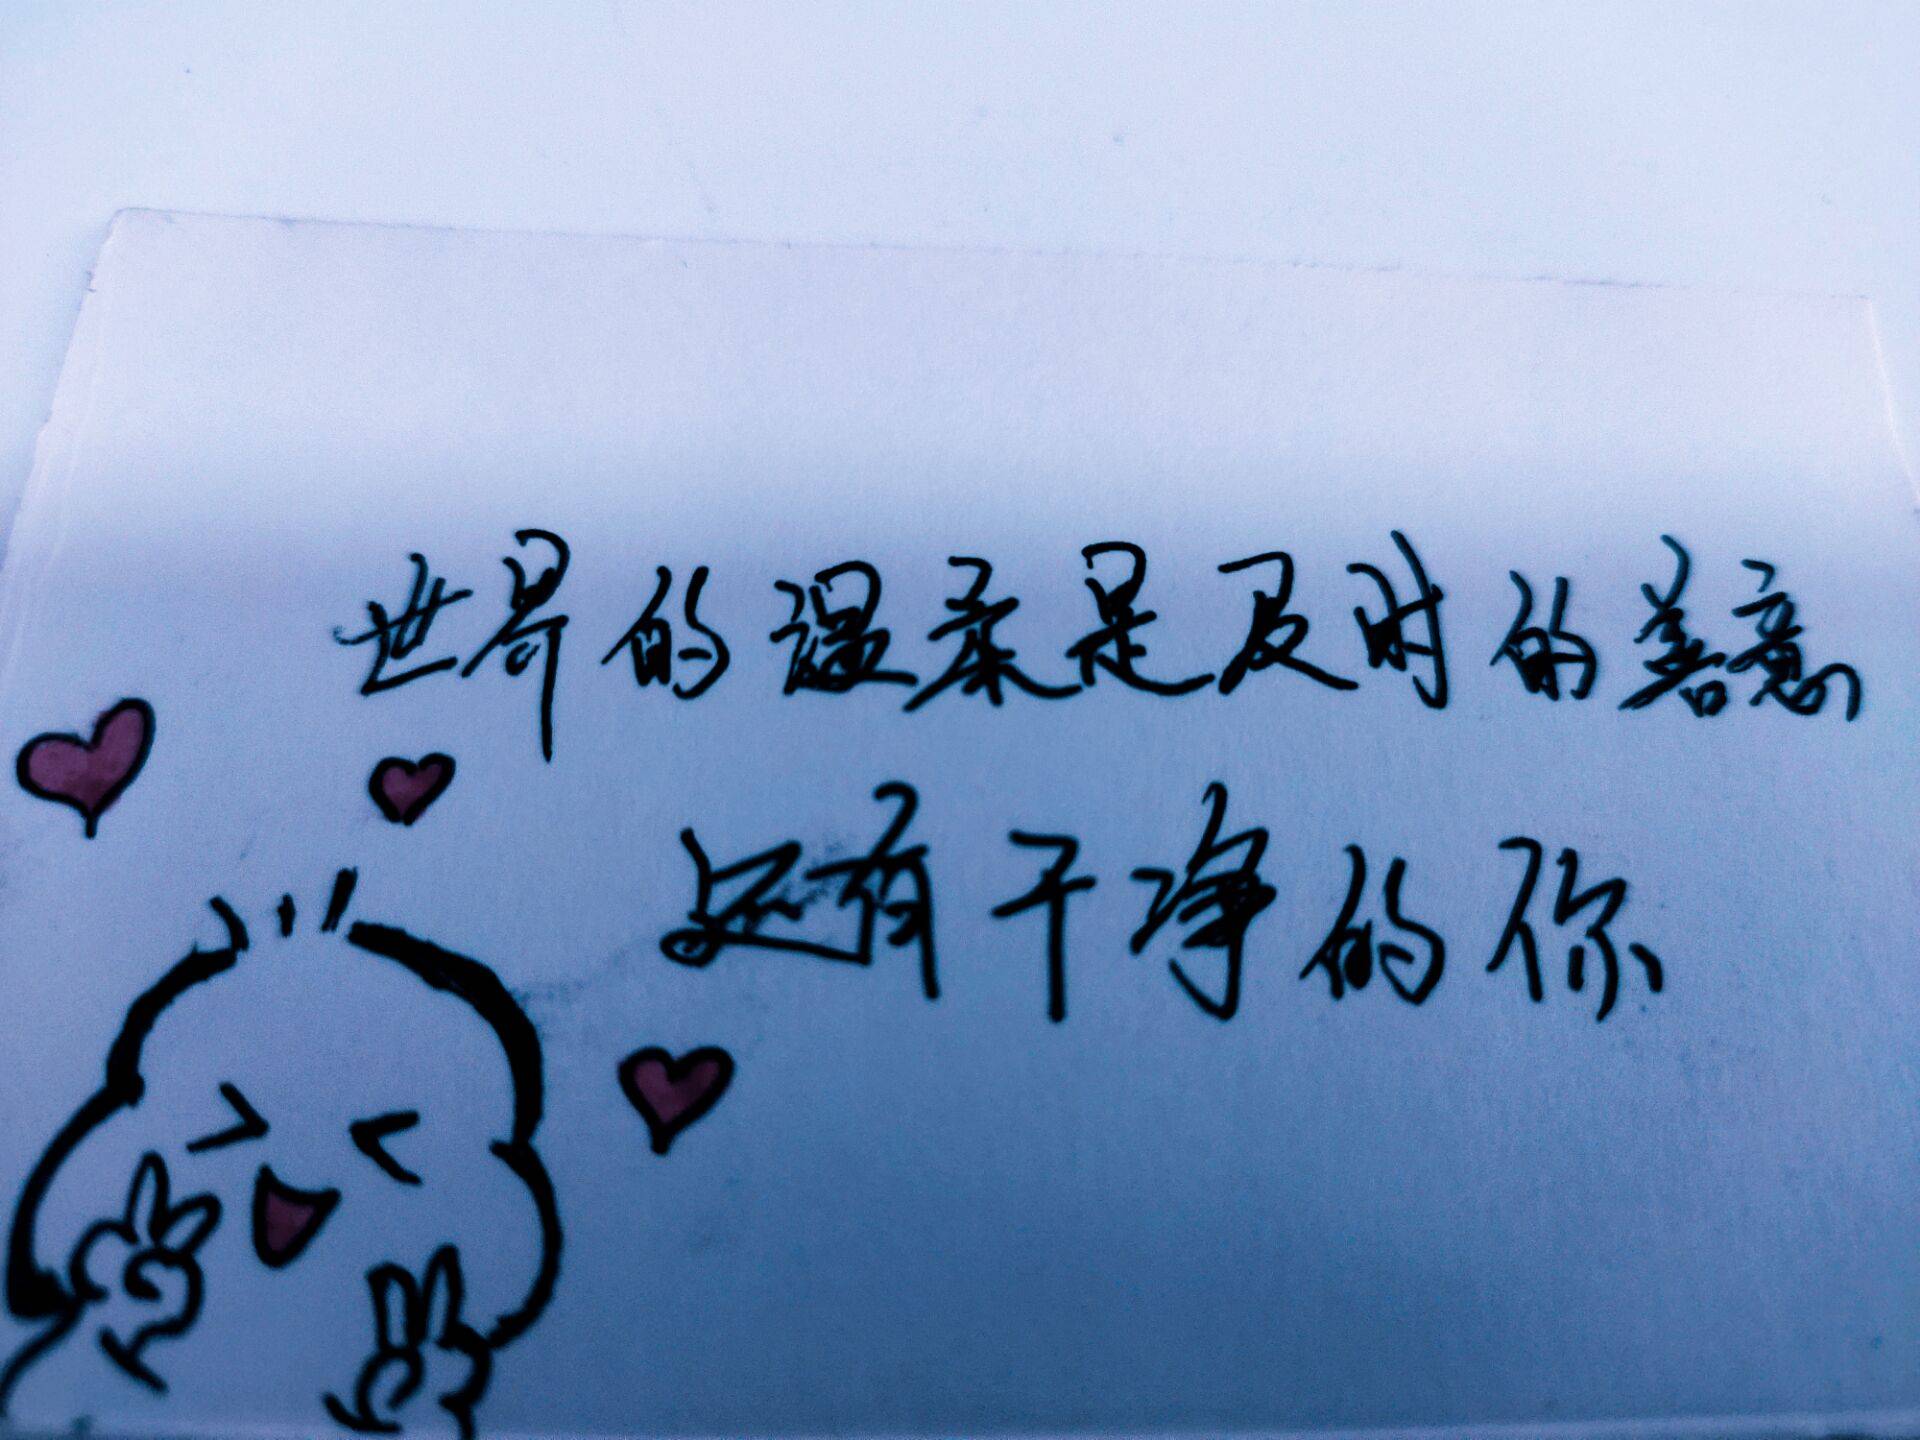 世界的温柔是及时的善意
还有干净的你